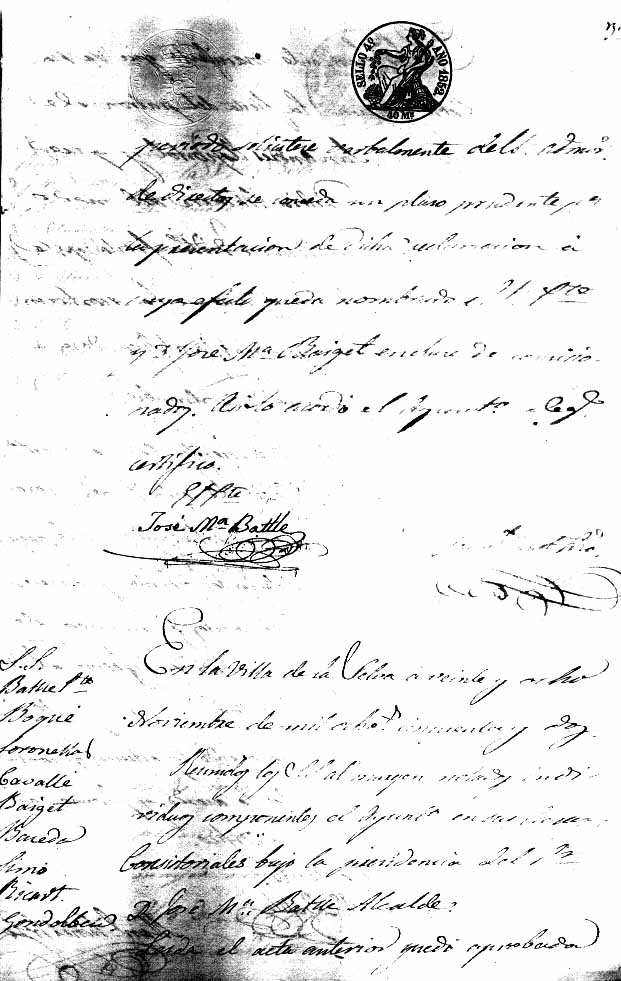 SELLO 4º AÑO 1852.
40 Ms
periodo solicitese verbalmente del S. admor.
de directos se conceda un plazo prudente pa
la presentacion de dicha reclamacion á
cuyo efecto queda nombrado el Sr. Pte
y Dn José Mª Baiget en clase de comisio-
nados. Asi lo acordó el Ayuntº
certifico.
El Pte
José Mª Batlle
En la Villa de la Selva á veinte y ocho
Noviembre de mil ochots cincuenta y dos.
Reunidos los SS al margen notados indi-
viduos componentes el Ayuntº en sus casas
Consistoriales bajo la presidencia del Sr
D. José Mª Batlle Alcalde:
Leida el acta anterior quedó aprobada
S.S.
Batlle Pte
Bogué
Coronellas
Cavallé
Baiget
Bareda
Simó
Ricart.